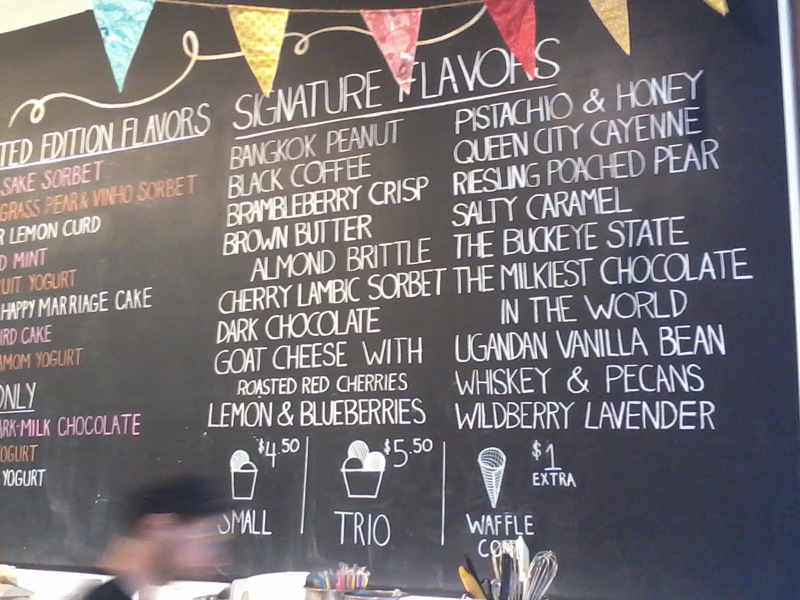 TED EDITION FLAVORS
SAKE SORBET
GRASS PEAR & VINHO SORBET
R LEMON CURD
D MINT
UIT YOGURT
HAPPY MARRIAGE CAKE
IRD CAKE
AMOM YOGURT
ONLY
ARK-MILK CHOCOLATE
OGURT
YOGURT
SIGNATURE FLAVORS
BANGKOK PEANUT
BLACK COFFEE
BRAMBLEBERRY CRISP
BROWN BUTTER
ALMOND BRITTLE
CHERRY LAMBIC SORBET
DARK CHOCOLATE
GOAT CHEESE WITH
ROASTED RED CHERRIES
LEMON & BLUEBERRIES
PISTACHIO & HONEY
QUEEN CITY CAYENNE
RIESLING POACHED PEAR
SALTY CARAMEL
THE BUCKEYE STATE
THE MILKIEST CHOCOLATE
IN THE WORLD
UGANDAN VANILLA BEAN
WHISKEY & PECANS
WILDBERRY LAVENDER
$4.50
SMALL
$5.50
TRIO
$1
EXTRA
WAFFLE
CONE